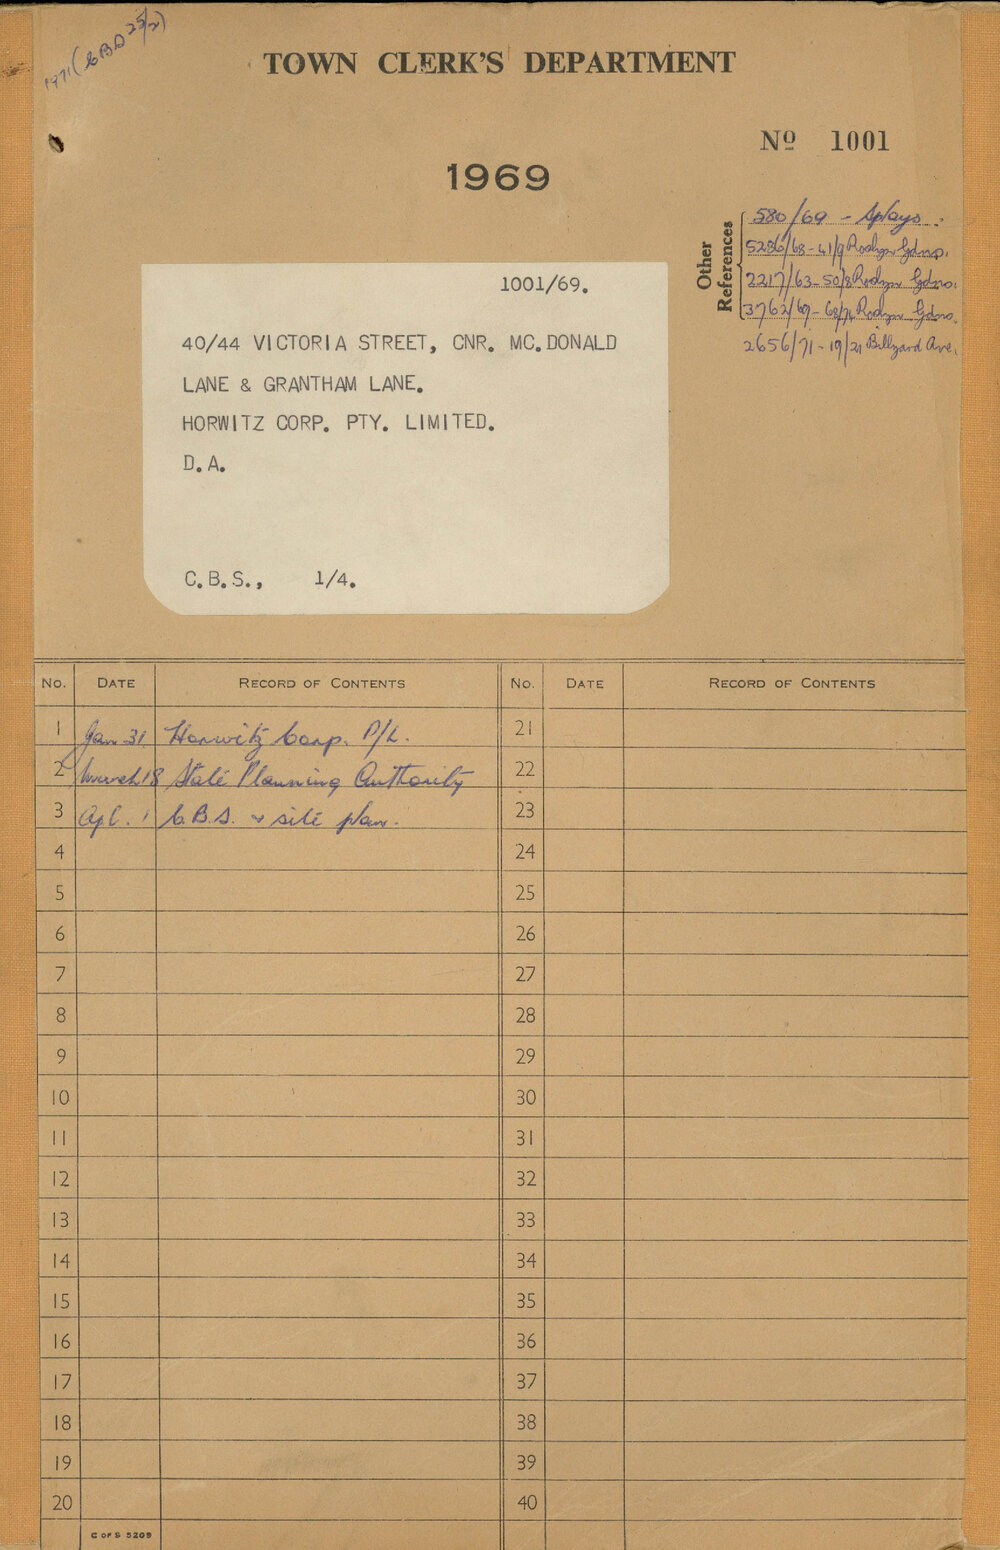 1971 (CBD 25/2)
TOWN CLERK'S DEPARTMENT
Nº 1001
1969
Other References
580/69 - Splays.
5286/68 - 41/9 Roslyn Gdns.
2217/63 - 50/8 Roslyn Gdns.
3762/69 - 68/74 Roslyn Gdns.
2656/71 - 19/21 Billyard Ave.
1001/69.
40/44 VICTORIA STREET, CNR. MC.DONALD
LANE & GRANTHAM LANE.
HORWITZ CORP. PTY. LIMITED.
D.A.
C.B.S., 1/4.
No. DATE RECORD OF CONTENTS No. DATE RECORD OF CONTENTS
1 Jan 31 Horwitz Corp. P/L. 21
2 March 18 State Planning Authority 22
3 Apl. 1 C.B.S. & site plan. 23
4 24
5 25
6 26
7 27
8 28
9 29
10 30
11 31
12 32
13 33
14 34
15 35
16 36
17 37
18 38
19 39
20 40
C OF S 5209